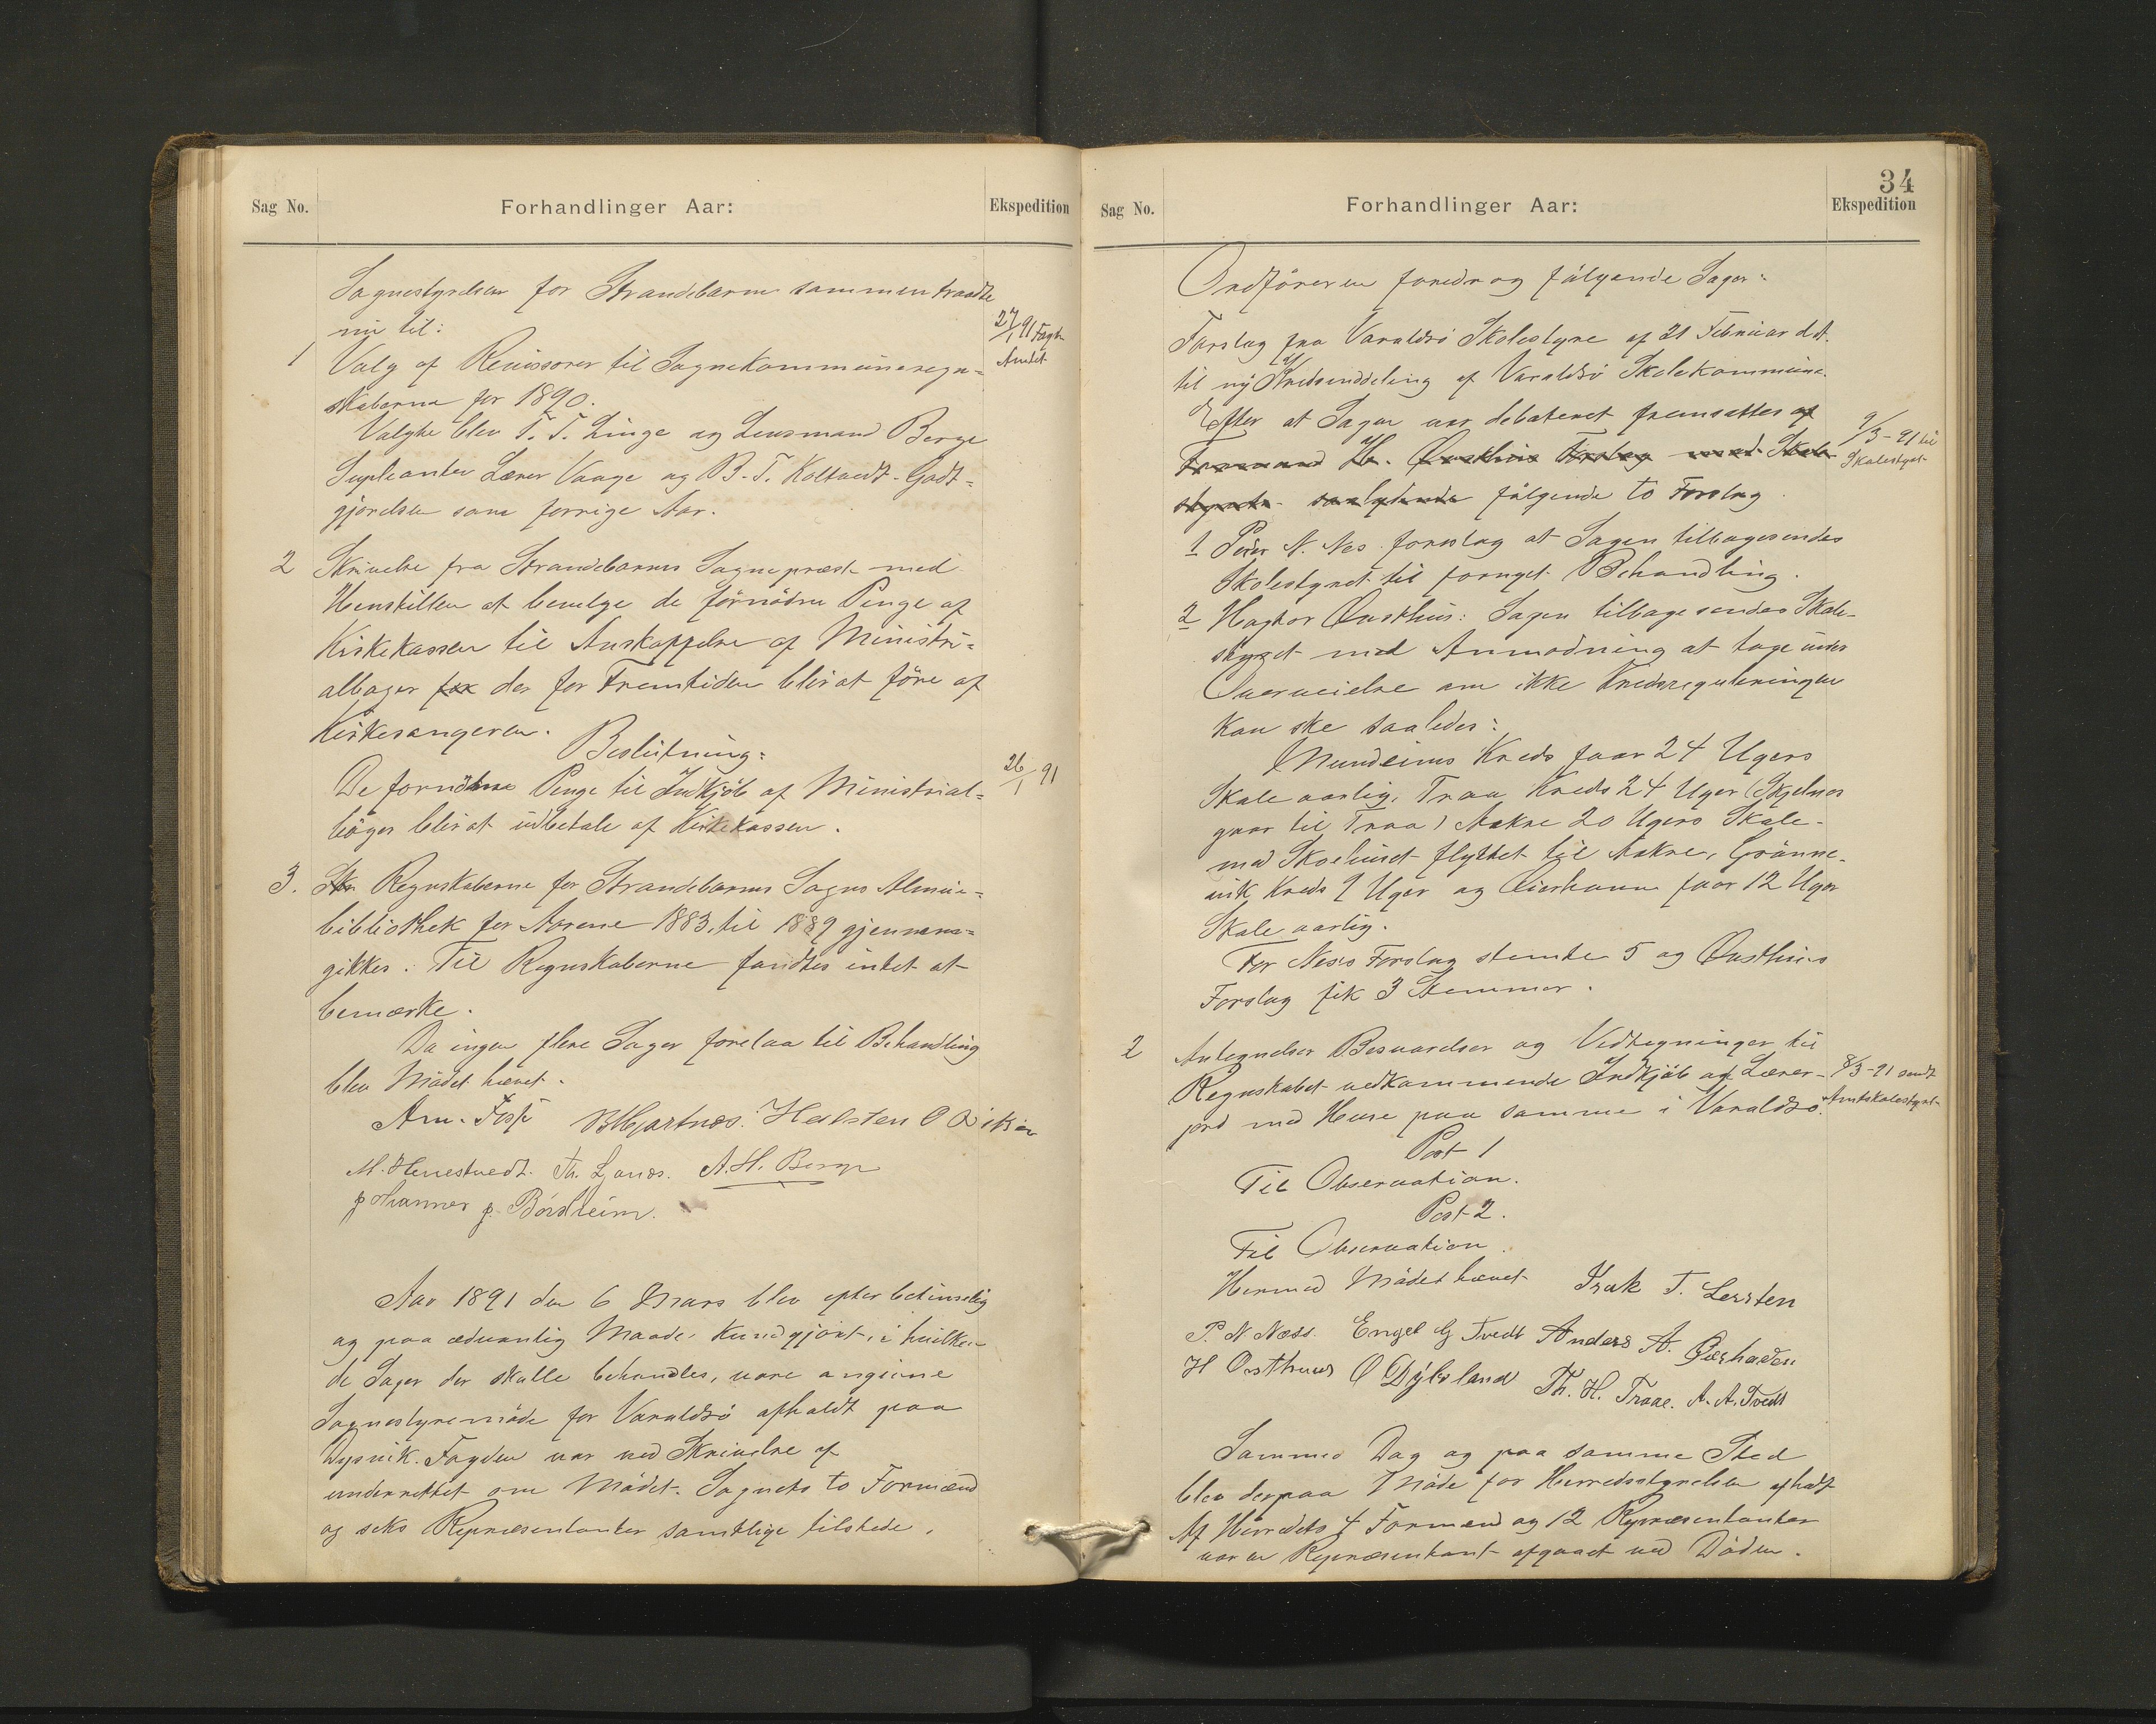 Sag No.
Forhandlinger Aar:
Ekspedition
Sognestyrelsen for Strandebarm sammentraadte
nu til:
27/1 91 Fogh
Amtet
1 Valg af Revissorer til Sognekommuneregn=
skaberne for 1890.
Valgte blev T. T. Linge og Lensmand Berge
Supleanter Lærer Vaage og B. T. Koltvedt. Godt=
gjørelsen som forrige Aar.
2 Skrivelse fra Strandebarms Sognepræst med
Henstillen at bevilge de fornødne Penge af
Kirkekassen til Anskaffelse af Ministri=
alböger for der for Fremtiden blir at före af
Kirkesangeren.
Beslutning:
De fornödne Penge til Indkjöb af Ministrial=
böger blir at udbetale af Kirkekassen.
26/1 91
3. Skr Regnskaberne for Strandebarms Sogns Almue=
bibliothek for Aarene 1883 til 1889 gjennem=
gikkes. Til Regnskaberne fandtes intet at
bemærke.
Da ingen flere Sager forelaa til Behandling
blev Mödet hævet.
Arn. Fosse B Hjartnæs. Halsten O Oiken
M. Henestvedt. Th. Ljones. A. H. Berge
Johannes J. Börsheim.
Aar 1891 den 6 Mars blev efter betimelig
og paa sedvanlig Maade Kundgjort, i hvilken
de Sager der skulle behandles, vare angivne
Sognestyremöde for Varaldsö afholdt paa
Dysvik. Fogden var ved Skrivelse af
underrettet om Mödet. Sognets to Formænd
og seks Repræsentanter samtlige tilstede.
34
Sag No.
Forhandlinger Aar:
Ekspedition
Ordföreren foredrog fölgende Sager:
Forslag fra Varaldsö Skolestyre af 21 Februar d.A.
til ny Kredsinddeling af Varaldsö Skolekommune.
Efter at Sagen var debateret fremsattes af
9/3-91 til
Skolestyret
Formand H. Qusthus Forslag med Skole
styrets saalydende fölgende to Forslag
1 Peder N. Nes foreslog at Sagen tilbagesendes
Skolestyret til fornyet Behandling.
2 Hagtor Qusthus: Sagen tilbagesendes Skole-
styret med Anmodning at tage under
Overveielse om ikke Kredsreguleringen
kan ske saaledes:
Mundeims Kreds faar 24 Ugers
Skole aarlig, Traa Kreds 24 Uger (Skjelnes
gaar til Traa) Aakre 20 Ugers Skole
med Skolehuset flyttet til Aakre, Grönne-
vik Kreds 9 Uger og Gierhavn faar 12 Uger
Skole aarlig.
For Ness Forslag stemte 5 og Qusthus
Forslag fik 3 Stemmer.
2 Antegnelser Besvarelser og Vedtegninger til
Regnskabet vedkommende Indkjöb af Lærer-
jord med Huse paa samme i Varaldsö.
8/3-91 sendt
Amtskolestyret
Post 1
Til Observation.
Post 2.
Til Observation.
Hermed Mödet hævet Isak T. Lersten
P. N Næss. Engel G Tvedt Anders A. Gierhaven
H Qusthuus O Dÿbsland Th. H. Traae. A. A. Tvedt
Samme Dag og paa samme Sted
blev derpaa Möde for Herredsstyrelsen afholdt
Af Herredets 4 Formænd og 12 Repræsentanter
var en Repræsentant afgaaet ved Döden.